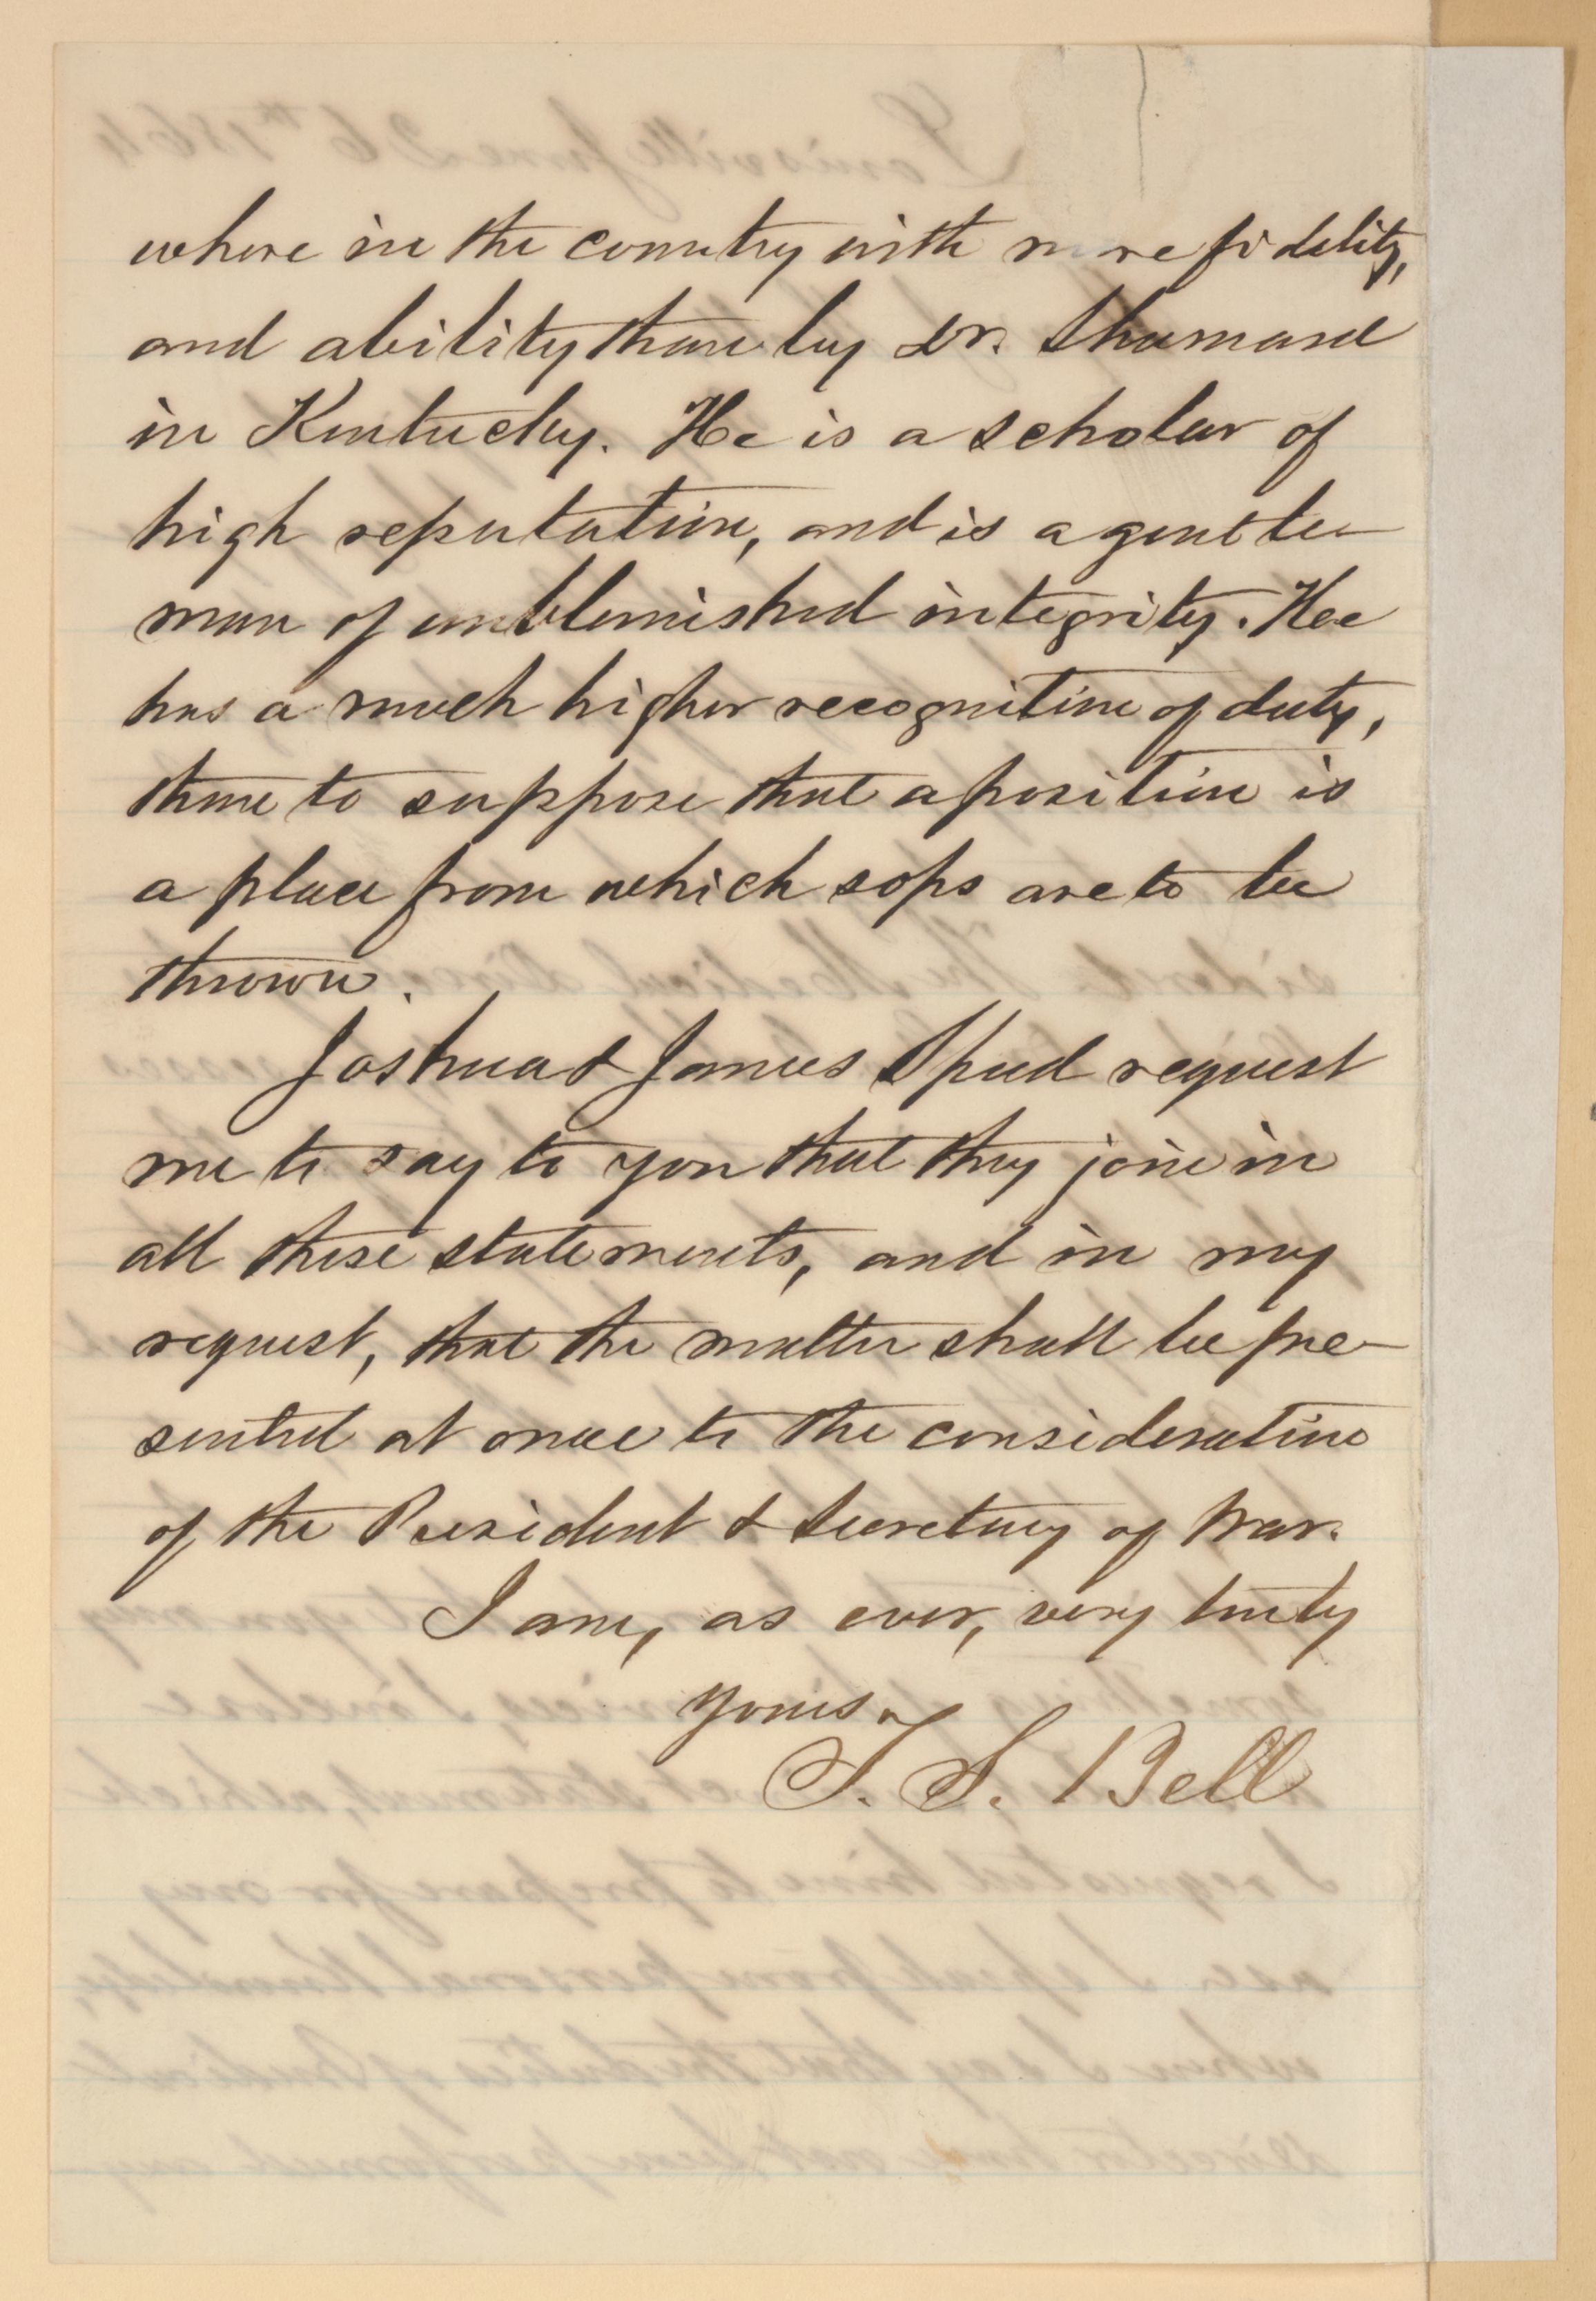 where in the country with more fidelity,
and ability than by Dr. Shumard
in Kentucky. He is a scholar of
high reputation, and is a gentle-
man of unblemished integrity. He
has a much higher recognition of duty,
than to suppose that a position is
a place from which sops are to be
thrown.
Joshua & James Speed request
me to say to you that they join in
all these statements, and in my
request, that the matter shall be pre-
sented at once to the consideration
of the President & Secretary of War.
I am, as ever, very truly
yours
T. S. Bell